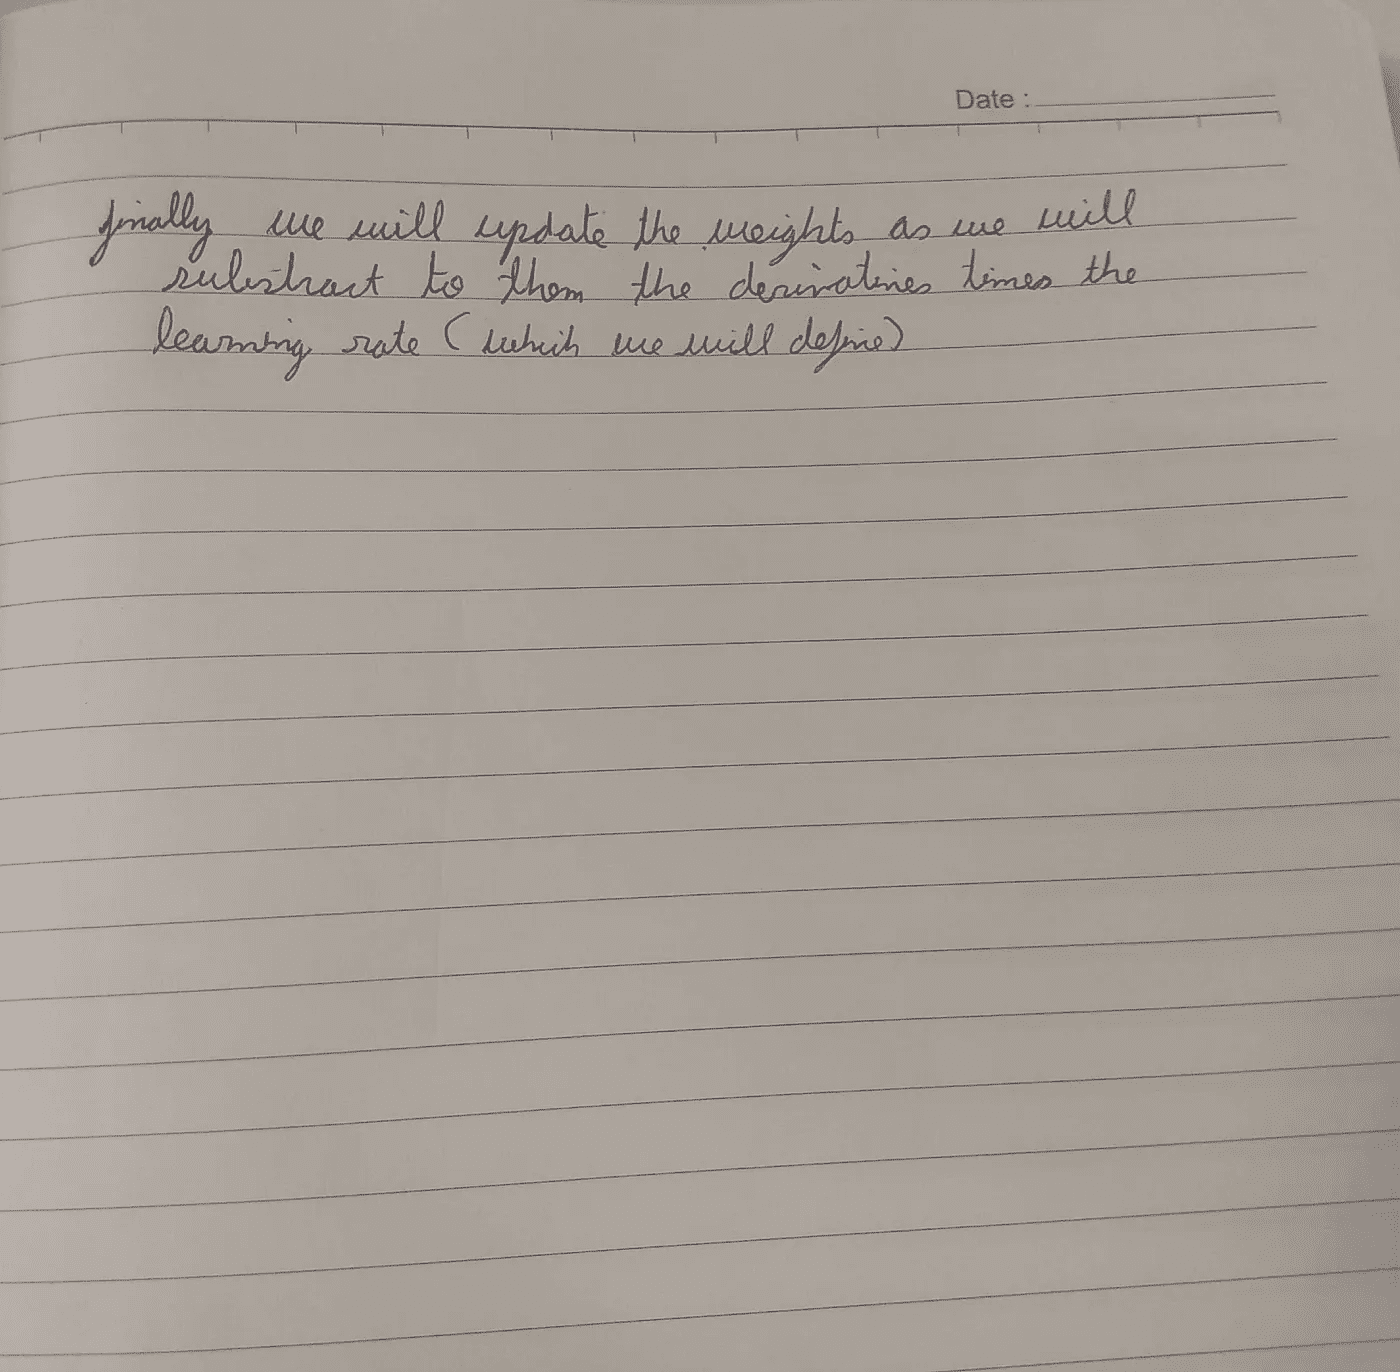 Date :
finally we will update the weights as we will
substract to them the derivatives times the
learning rate (which we will define)